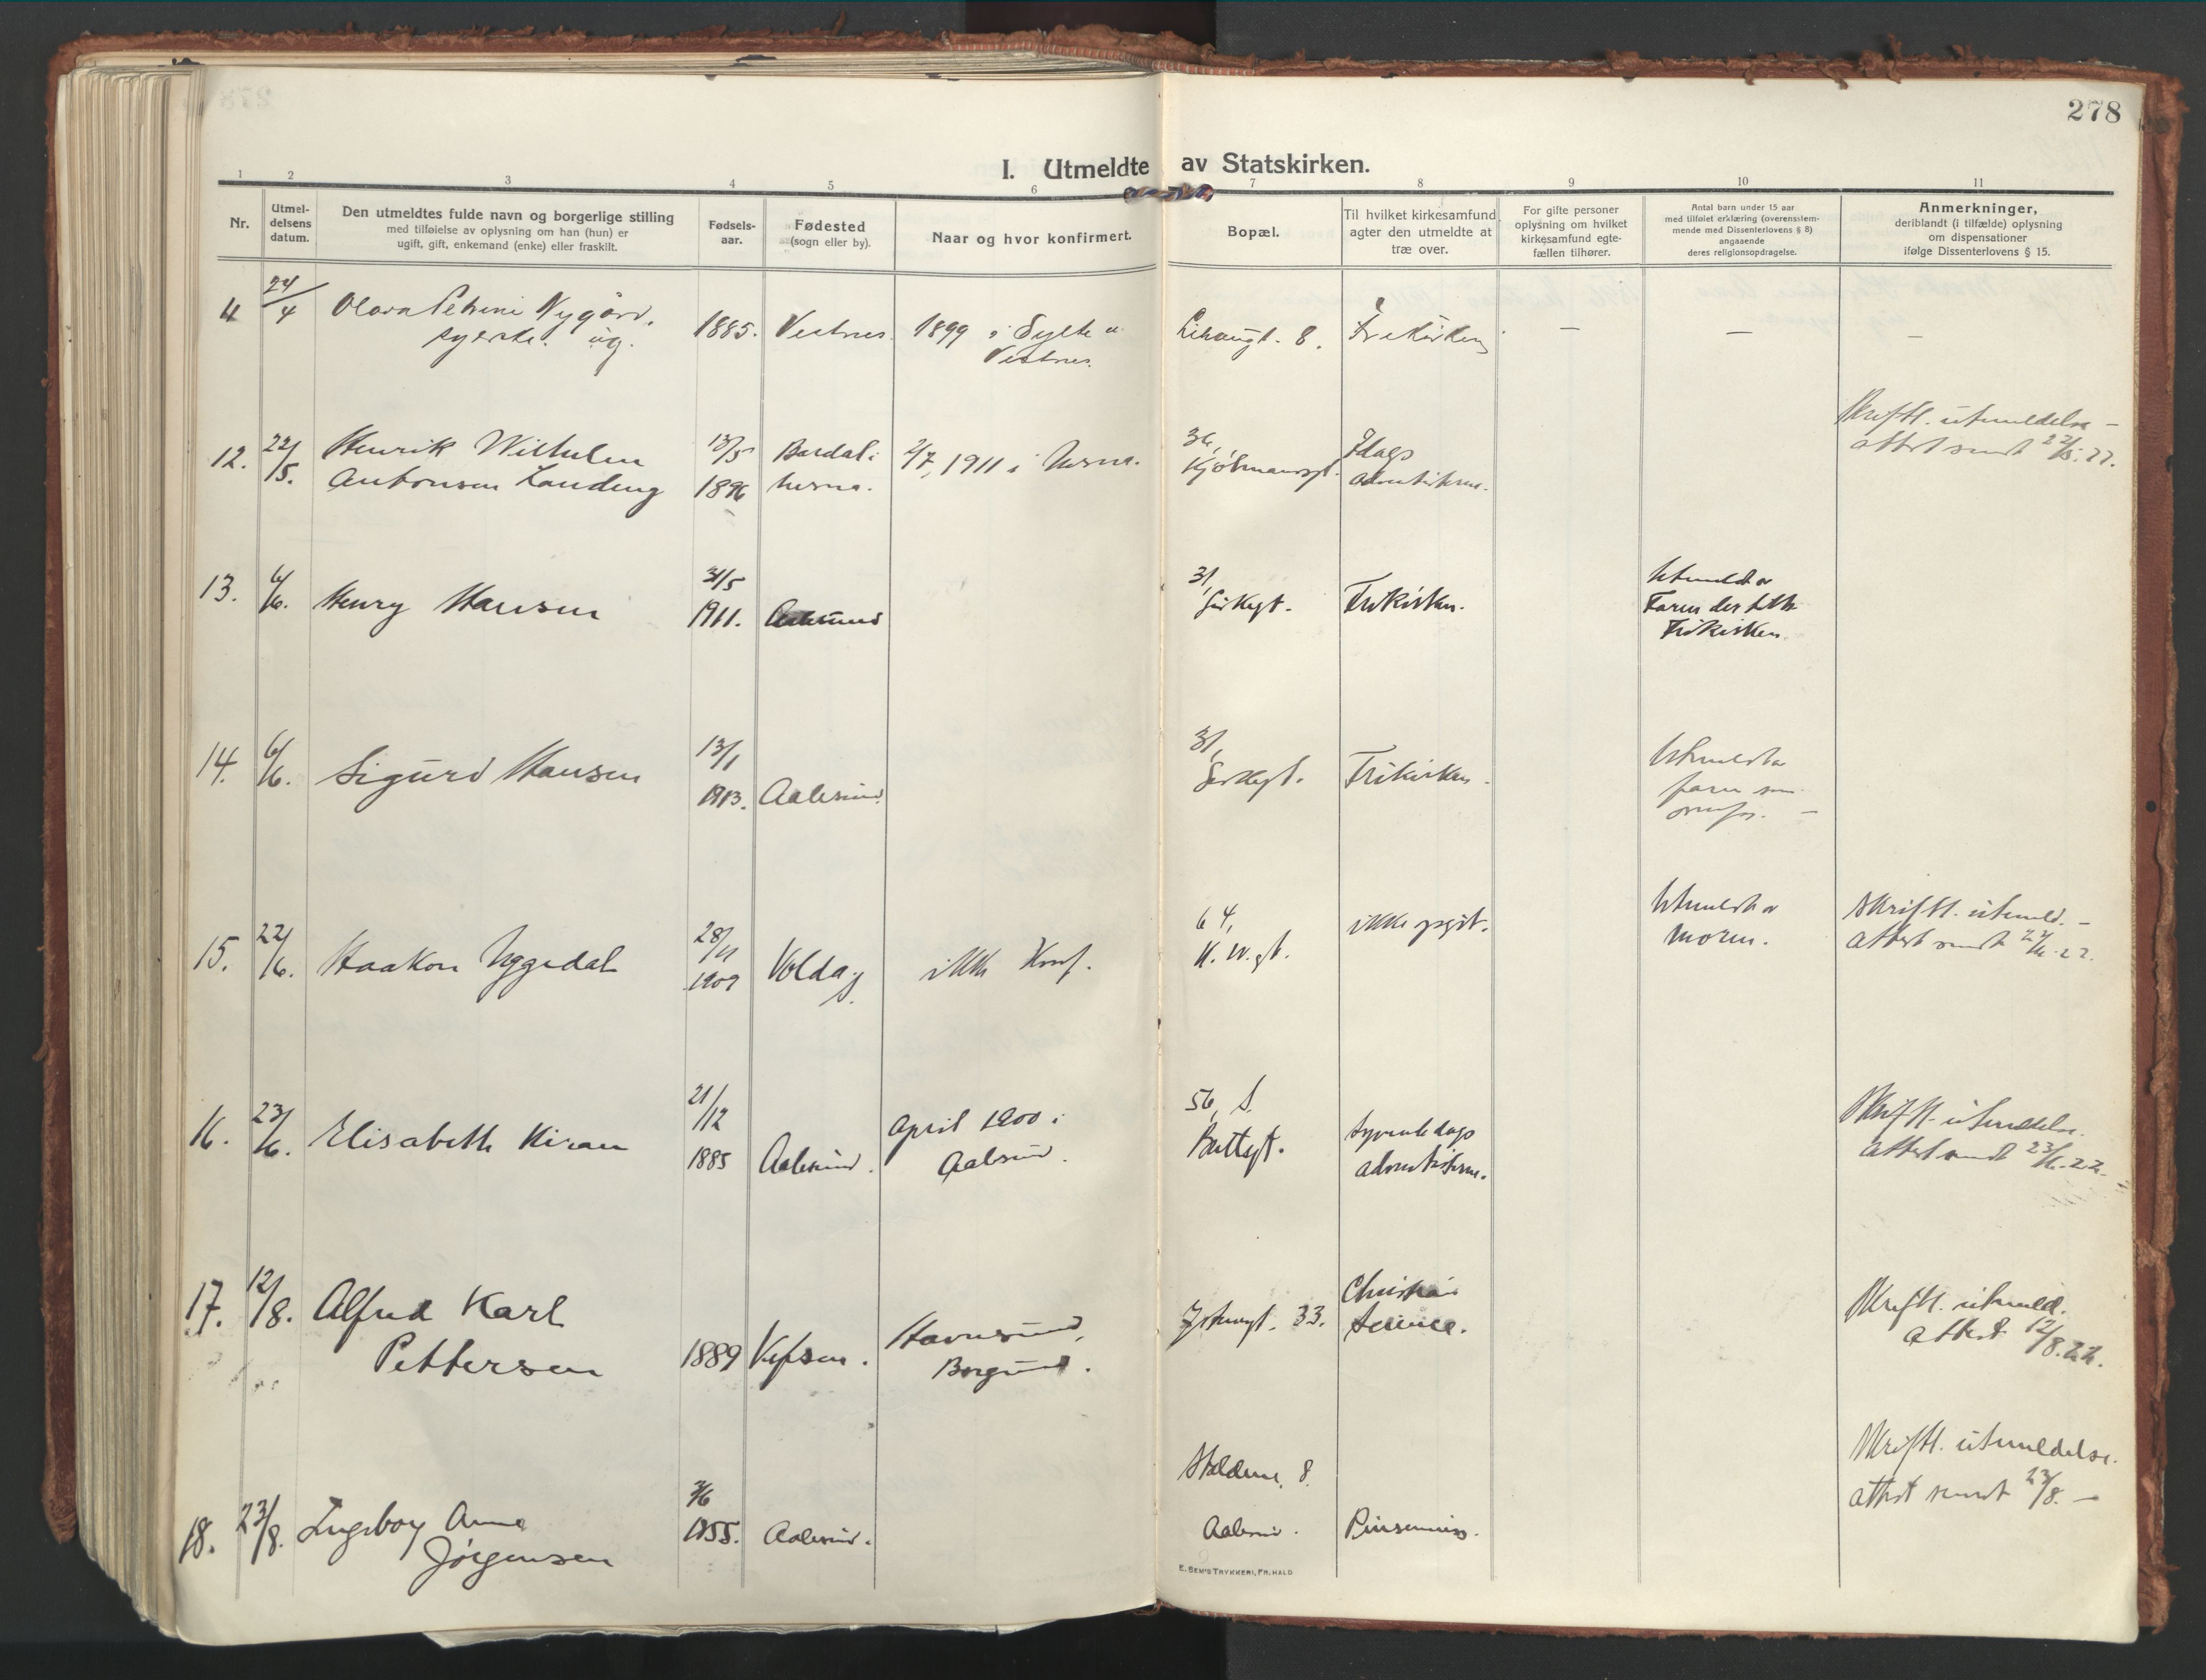 278
I. Utmeldte av Statskirken.
1 2 3 4 5 6 7 8 9 10 11
Nr.
Utmel-
delsens
datum.
Den utmeldtes fulde navn og borgerlige stilling
med tilføielse av oplysning om han (hun) er
ugift, gift, enkemand (enke) eller fraskilt.
Fødsels-
aar.
Fødested
(sogn eller by).
Naar og hvor konfirmert.
Bopæl.
Til hvilket kirkesamfund
agter den utmeldte at
træ over.
For gifte personer
oplysning om hvilket
kirkesamfund egte-
fællen tilhører.
Antal barn under 15 aar
med tilføiet erklæring (overensstem-
mende med Dissenterlovens § 8)
angaaende
deres religionsopdragelse.
Anmerkninger,
deriblandt (i tilfælde) oplysning
om dispensationer
ifølge Dissenterlovens § 15.
11 24/4 Olava Petrine Nygård,
syerske. ug.
1885. Vestnes 1899 i Sylte
Vestnes.
8. Frikirken — — —
12. 22/5. Henrik Wilhelm
Antonsen Landeng
13/5
1896
Bardal i
Nesna.
2/7, 1911 i Nesna.
36,
7dags
adventisterne.
Skriftl. utmeldelse —
attest sendt 22/5. 22.
13. 6/6. Henry Hansen
31/5
1911. Aalesund
31,
Kirkegt. Frikirken.
Utmeldt av
Faren der tilh.
Frikirken.
14. 6/6. Sigurd Hansen
13/1
1913. Aalesund.
31,
Kirkegt. Frikirken.
Utmeldt av
faren som
ovenfor. —
15. 22/6. Haakon Yggedal
28/11
1909 Volda ikke Konf.
64,
K. W. gt. ikke opgit.
Utmeldt av
moren.
Skriftl. utmeld. —
attest sendt 22/6. 22.
16. 23/6. Elisabeth Kiran
21/12
1885 Aalesund.
April 1900 i
Aalesund.
56, S.
syvende dags
adventisterne.
Skriftl. utmeldelse.
Attest sendt 23/6. 22.
17. 12/8. Alfred Karl
Pettersen
1889 Vefsen.
Borgund.
33.
Christian
Science.
Skriftl. utmeld.
Attest 12/8. 22.
18. 23/8. Ingeborg Anna
Jørgensen
3/6
1855. Aalesund.
8.
Aalesund. Pinsemiss.
Skriftl. utmeldelse.
attest sendt 23/8. —
E. SEM'S TRYKKERI, FR.HALD